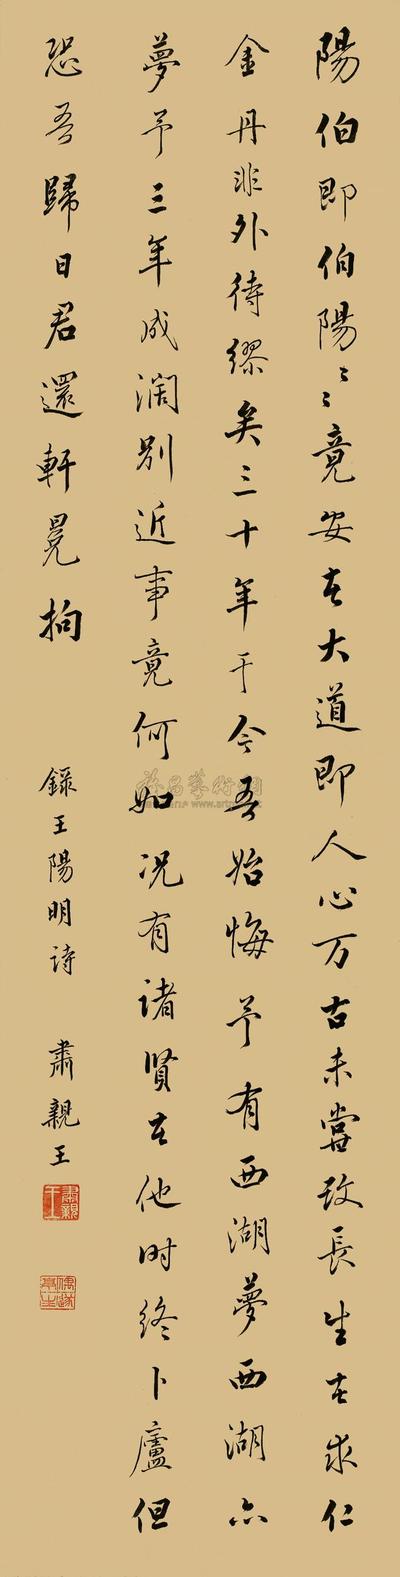 陽伯即伯陽〻〻竟安在大道即人心万古未嘗改長生在求仁
金丹非外待繆矣三十年于今吾始悔予有西湖夢西湖亦
夢予三年成濶别近事竟何如况有诸賢在他时终卜廬但
恐吾歸日君還軒冕拘
錄王陽明诗 肅親王
肅親王